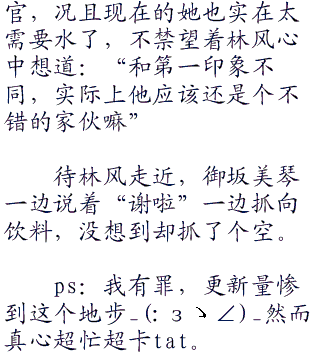 官，况且现在的她也实在太
需要水了，不禁望着林风心
中想道：“和第一印象不
同，实际上他应该还是个不
错的家伙嘛”
待林风走近，御坂美琴
一边说着“谢啦”一边抓向
饮料，没想到却抓了个空。
ps：我有罪，更新量惨
到这个地步_(:з ヽ∠)_然而
真心超忙超卡tat。